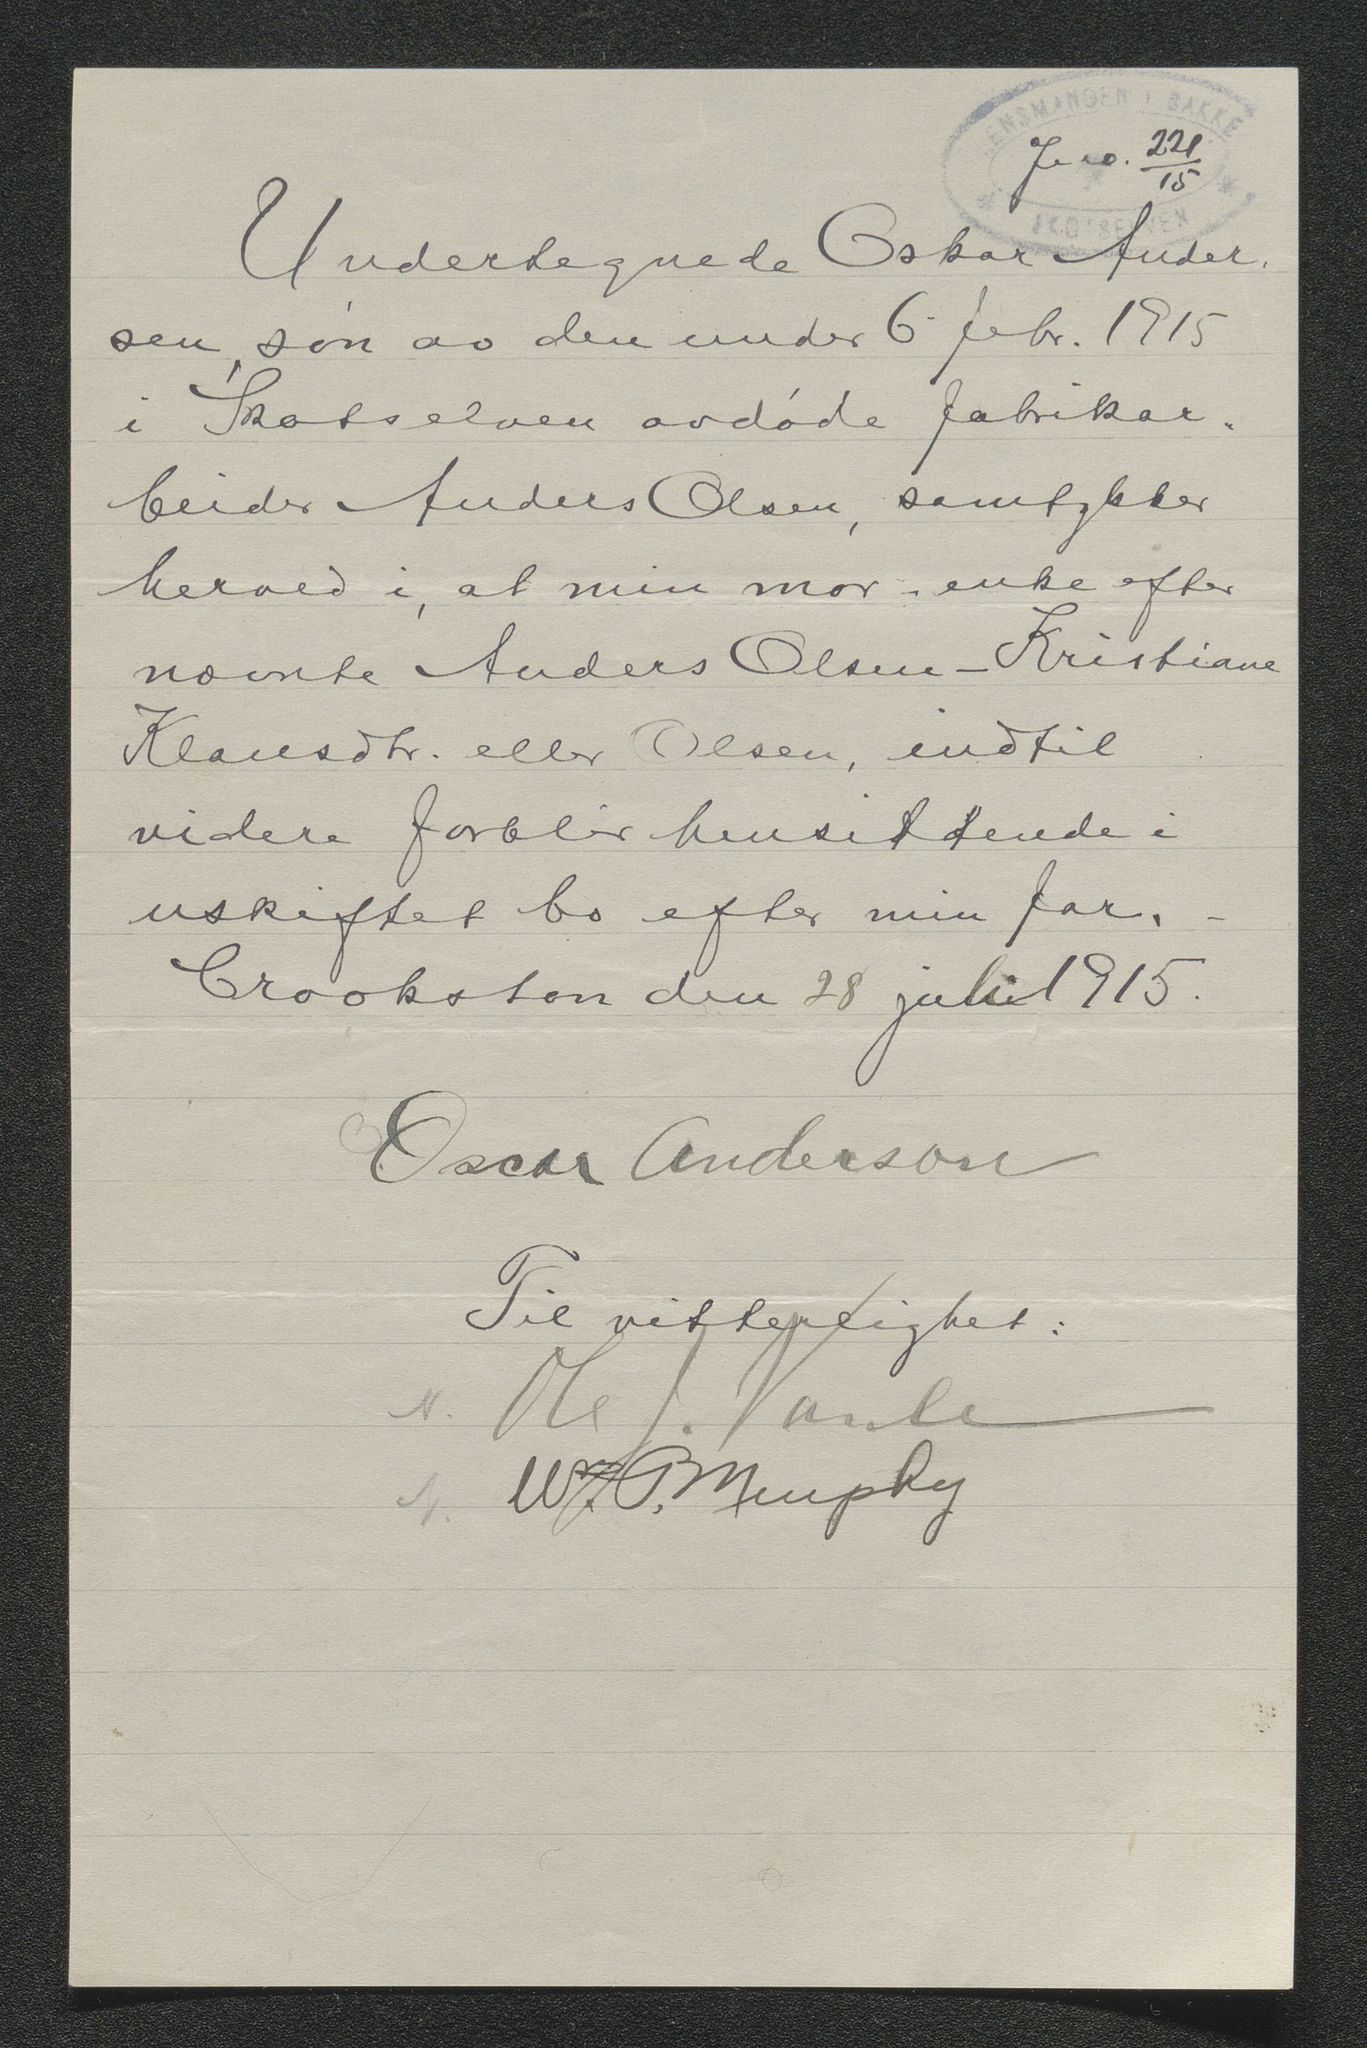 LENSMANDEN I BAKKE
J. no. 221/15
SKOTSELVEN
Undertegnede Oskar Ander-
sen, søn av den under 6 febr. 1915
i Skotselven avdøde fabrikar-
beider Anders Olsen, samtykker
herved i, at min mor - enke efter
nævnte Anders Olsen - Kristiane
Klausdtr. eller Olsen, indtil
videre forblir hensittende i
uskiftet bo efter min far. -
Crookston den 28 juli 1915.
Oscar Anderson
Til vitterlighet:
N. Ole J.
N. W. P. Murphy